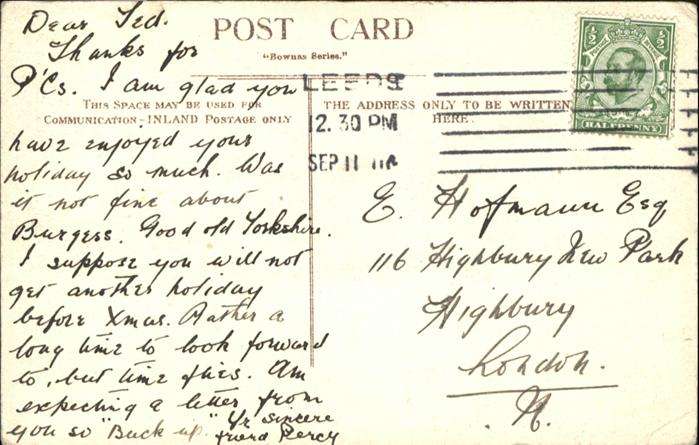 Dear Ted.
Thanks for
P'Cs. I am glad you
have enjoyed your
holiday so much. Was
it not fine about
Burgess. Good old Yorkshire.
I suppose you will not
get another holiday
before Xmas. Rather a
long time to look forward
to, but time flies. Am
expecting a letter from
you so "Buck up."
Yr sincere
friend Percy
POST CARD
"Bownas Series."
THIS SPACE MAY BE USED FOR
COMMUNICATION-INLAND POSTAGE ONLY
THE ADDRESS ONLY TO BE WRITTEN
HERE.
LEEDS
12.30 PM
SEP 11
½ ½
HALFPENNY
E. Hofmann Esq
116 Highbury New Park
Highbury
London.
N.